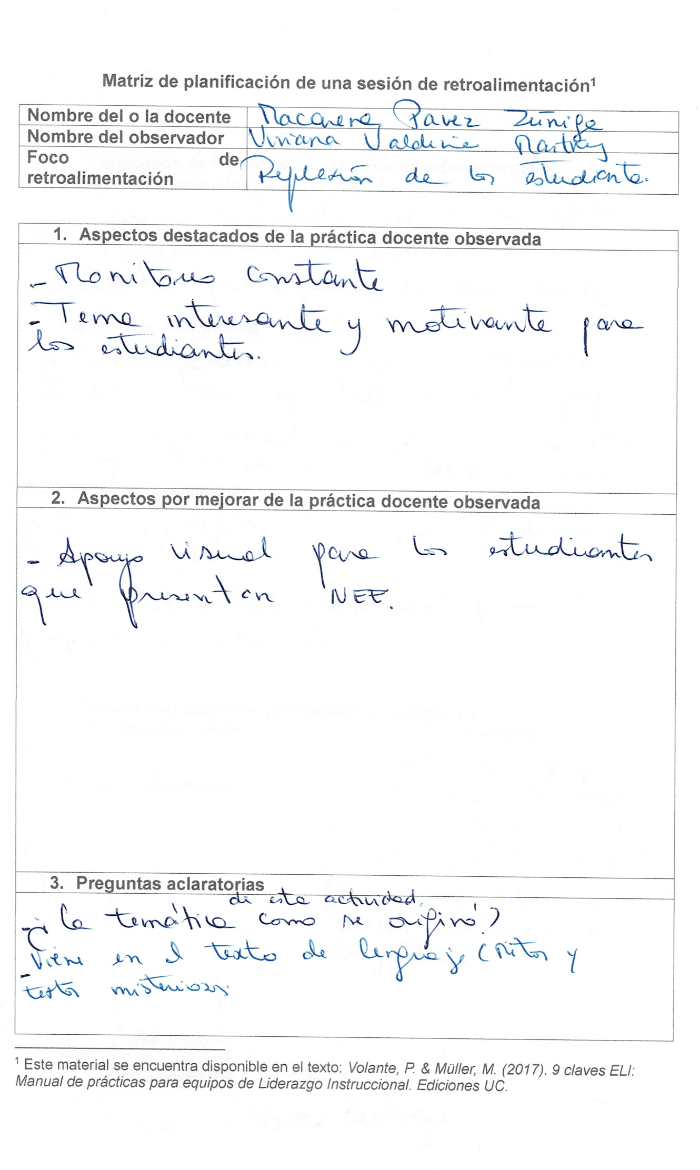 Matriz de planificación de una sesión de retroalimentación¹
Nombre del o la docente Macarena Pavez Zúñiga
Nombre del observador Viviana Martínez
Foco de
retroalimentación Reflexión de los estudiante.
1. Aspectos destacados de la práctica docente observada
- Monitoreo constante
- Tema interesante y motivante para
los estudiantes.
2. Aspectos por mejorar de la práctica docente observada
- Apoyo visual para los estudiantes
que presentan NEE.
3. Preguntas aclaratorias
de esta actividad
- ¿La temática como se originó?
- Viene en el texto de lenguaje (Mitos y
textos misteriosos.
¹ Este material se encuentra disponible en el texto: Volante, P. & Müller, M. (2017). 9 claves ELI:
Manual de prácticas para equipos de Liderazgo Instruccional. Ediciones UC.